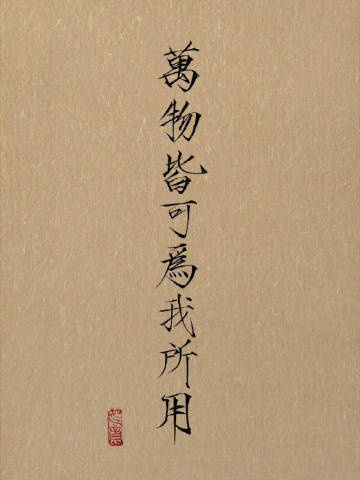 萬物皆可為我所用